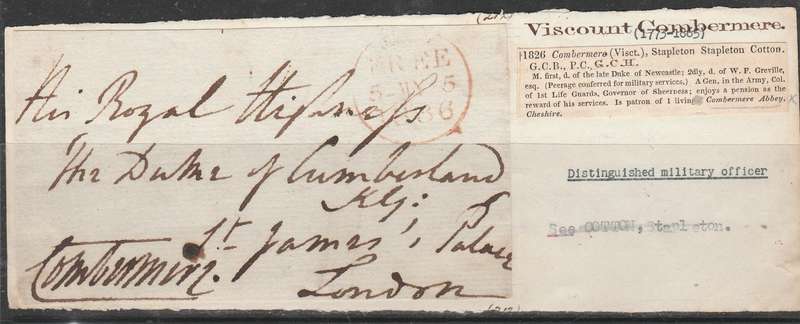 (212)
His Royal Highness
The Duke of Cumberland
K.G:
St James's Palace
London
Combermere.
FREE
5 MY 5
1836
(212)
Viscount Combermere.
(1773-1865)
1826 Combermere (Visct.), Stapleton Stapleton Cotton.
G.C.B., P.C., G.C.H.
M. first, d. of the late Duke of Newcastle; 2dly, d. of W. F. Greville,
esq. (Peerage conferred for military services.) A Gen. in the Army, Col.
of 1st Life Guards, Governor of Sheerness; enjoys a pension as the
reward of his services. Is patron of 1 living Combermere Abbey,
Cheshire.
Distinguished military officer
See COTTON, Stapleton.